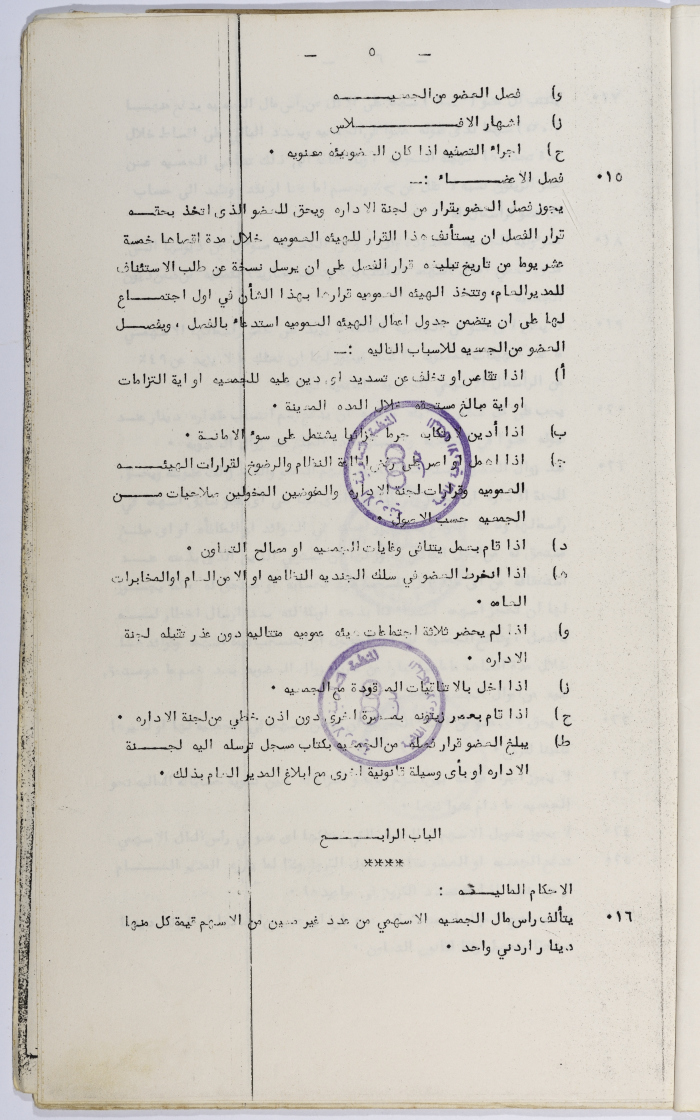 - ٥ -
و) فصل العضو من الجمعيـــــــه
ز) اشهار الافـــــــــلاس
ح) اجراء التصفيه اذا كان العضو هيئه معنويه ٠
١٥٠ فصل الاعضـــــــاء :ــ
يجوز فصل العضو بقرار من لجنة الاداره ويحق للعضو الذى اتخذ بحقـــه
قرار الفصل ان يستأنف هذا القرار للهيئه العموميه خلال مدة اقصاها خمسة
عشر يوما من تاريخ تبليغه قرار الفصل على ان يرسل نسخة عن طلب الاستئناف
للمدير العام، وتتخذ الهيئه العموميه قرارها بهذا الشأن في اول اجتمـــــاع
لها على ان يتضمن جدول اعمال الهيئه العموميه استدعاء بالفصل ، ويفصـــل
العضو من الجمعيه للاسباب التاليه :ــ
أ) اذا تقاعس او تخلف عن تسديد اى دين عليه للجمعيه او اية التزامات
او اية مبالغ مستحقه خلال المده المعينة ٠
ب) اذا أدين بارتكابه جرما جزائيا يشتمل على سوء الامانــة ٠
ج) اذا اهمل او اصر على رفض اطاعة النظام والرضوخ لقرارات الهيئـــــه
العموميه وقرارات لجنة الاداره والمفوضين المخولين صلاحيات مـــــن
الجمعيه حسب الاصول ٠
د) اذا قام بعمل يتنافى وغايات الجمعيه او مصالح التعاون ٠
هـ) اذا انخرط العضو في سلك الجنديه النظاميه او الامن العام او المخابرات
العامه ٠
و) اذا لم يحضر ثلاثة اجتماعات هيئه عموميه متتاليه دون عذر تقبله لجنة
الاداره ٠
ز) اذا اخل بالاتفاقيات المعقودة مع الجمعيه ٠
ح) اذا قام بعصر زيتونه بمعصرة اخرى دون اذن خطي من لجنة الاداره ٠
ط) يبلغ العضو قرار فصله من الجمعيه بكتاب مسجل ترسله اليه لجـــــنة
الاداره او بأى وسيلة قانونية اخرى مع ابلاغ المدير العام بذلك ٠
الباب الرابـــــــع
****
الاحكام الماليـــه :
١٦٠ يتألف راس مال الجمعيه الاسهمي من عدد غير معين من الاسهم قيمة كل منها
دينار اردني واحد ٠